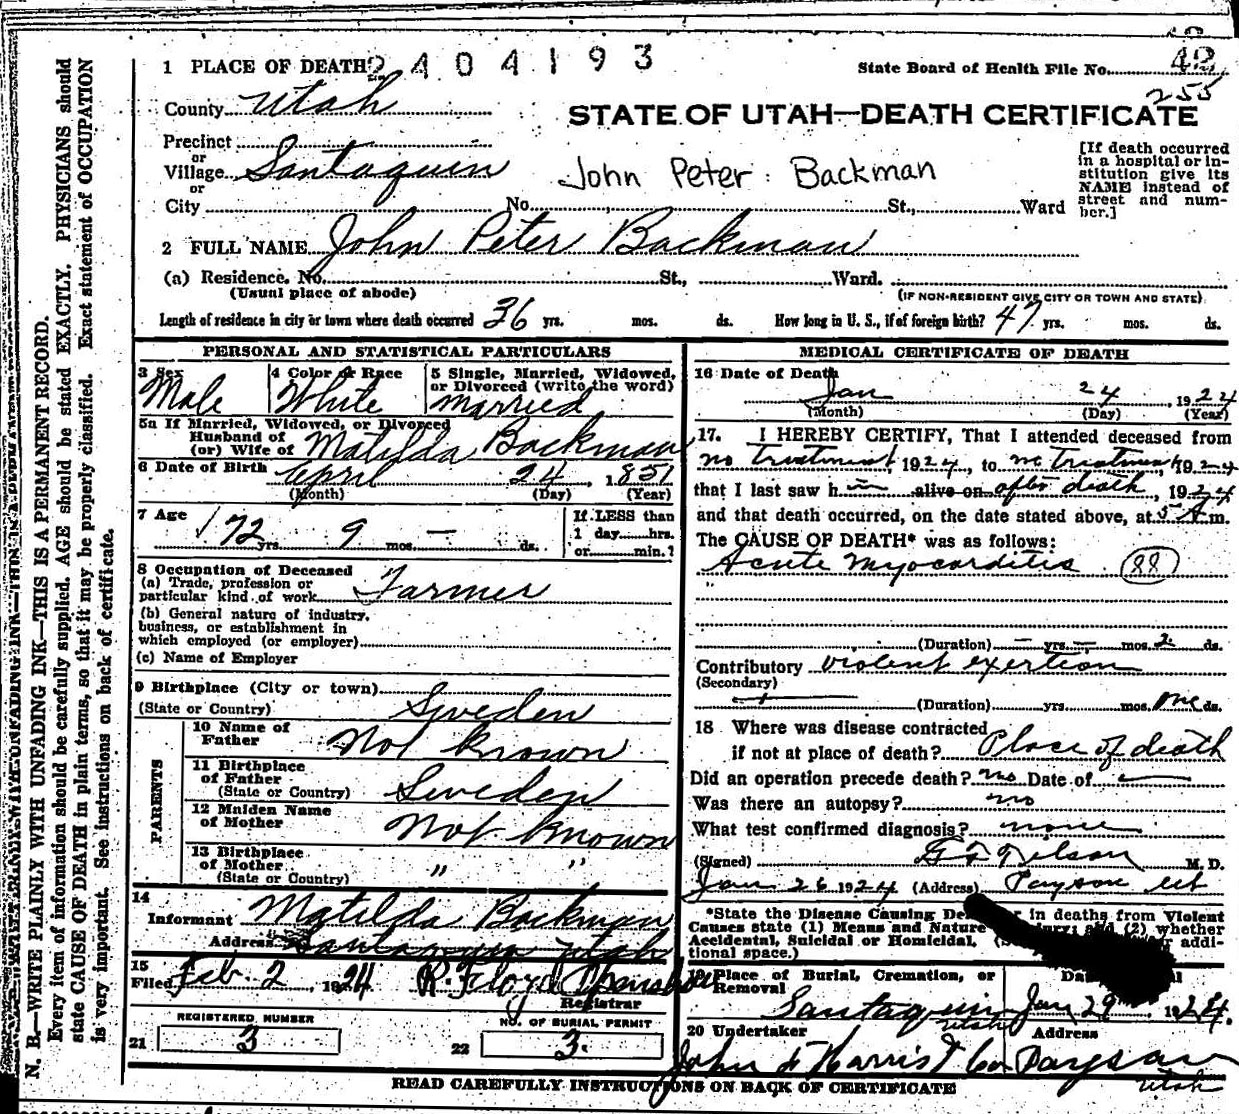 2404193
1 PLACE OF DEATH
State Board of Health File No. 42
255
County Utah
STATE OF UTAH—DEATH CERTIFICATE
Precinct
or
Village Santaquin
or
City No. St., Ward
John Peter Backman
[If death occurred in a hospital or institution give its NAME instead of street and number.]
2 FULL NAME John Peter Backman
(a) Residence. No. St., Ward.
(Usual place of abode) (IF NON-RESIDENT GIVE CITY OR TOWN AND STATE)
Length of residence in city or town where death occurred 36 yrs. mos. ds. How long in U. S., if of foreign birth? 47 yrs. mos. ds.
PERSONAL AND STATISTICAL PARTICULARS
3 Sex 4 Color or Race 5 Single, Married, Widowed, or Divorced (write the word)
Male White Married
5a If Married, Widowed, or Divorced
Husband of
(or) Wife of Matilda Backman
6 Date of Birth April 24, 1851
(Month) (Day) (Year)
7 Age 72 yrs. 9 mos. — ds.
If LESS than
1 day hrs.
or min.?
8 Occupation of Deceased
(a) Trade, profession or particular kind of work Farmer
(b) General nature of industry, business, or establishment in which employed (or employer)
(c) Name of Employer
9 Birthplace (City or town)
(State or Country) Sweden
PARENTS
10 Name of Father Not known
11 Birthplace of Father (State or Country) Sweden
12 Maiden Name of Mother Not known
13 Birthplace of Mother (State or Country) " "
14
Informant Matilda Backman
Address Santaquin Utah
15
Filed Feb 2 1924 R. Floyd
Registrar
REGISTERED NUMBER NO. OF BURIAL PERMIT
21 3 22 3.
MEDICAL CERTIFICATE OF DEATH
16 Date of Death
Jan 24, 1924
(Month) (Day) (Year)
17. I HEREBY CERTIFY, That I attended deceased from
no treatment, 1924, to no treatment, 1924
that I last saw him alive on after death, 1924
and that death occurred, on the date stated above, at 5 A m.
The CAUSE OF DEATH* was as follows:
Acute Myocarditis (88)
(Duration) — yrs. — mos. 2 ds.
Contributory violent exertion
(Secondary)
(Duration) yrs. mos. one ds.
18 Where was disease contracted
if not at place of death? Place of death
Did an operation precede death? no Date of —
Was there an autopsy? no
What test confirmed diagnosis? none
(Signed) M. D.
Jan 26 1924 (Address) Payson Ut
*State the Disease Causing in deaths from Violent
Causes state (1) Means and Nature and (2) whether
Accidental, Suicidal or Homicidal. addi-
tional space.)
19 Place of Burial, Cremation, or Removal
Santaquin Utah Jan 29 1924.
20 Undertaker Address
John Harris Co Payson Utah
READ CAREFULLY INSTRUCTIONS ON BACK OF CERTIFICATE
N. B.—WRITE PLAINLY WITH UNFADING INK—THIS IS A PERMANENT RECORD.
Every item of information should be carefully supplied. AGE should be stated EXACTLY. PHYSICIANS should
state CAUSE OF DEATH in plain terms, so that it may be properly classified. Exact statement of OCCUPATION
is very important. See instructions on back of certificate.